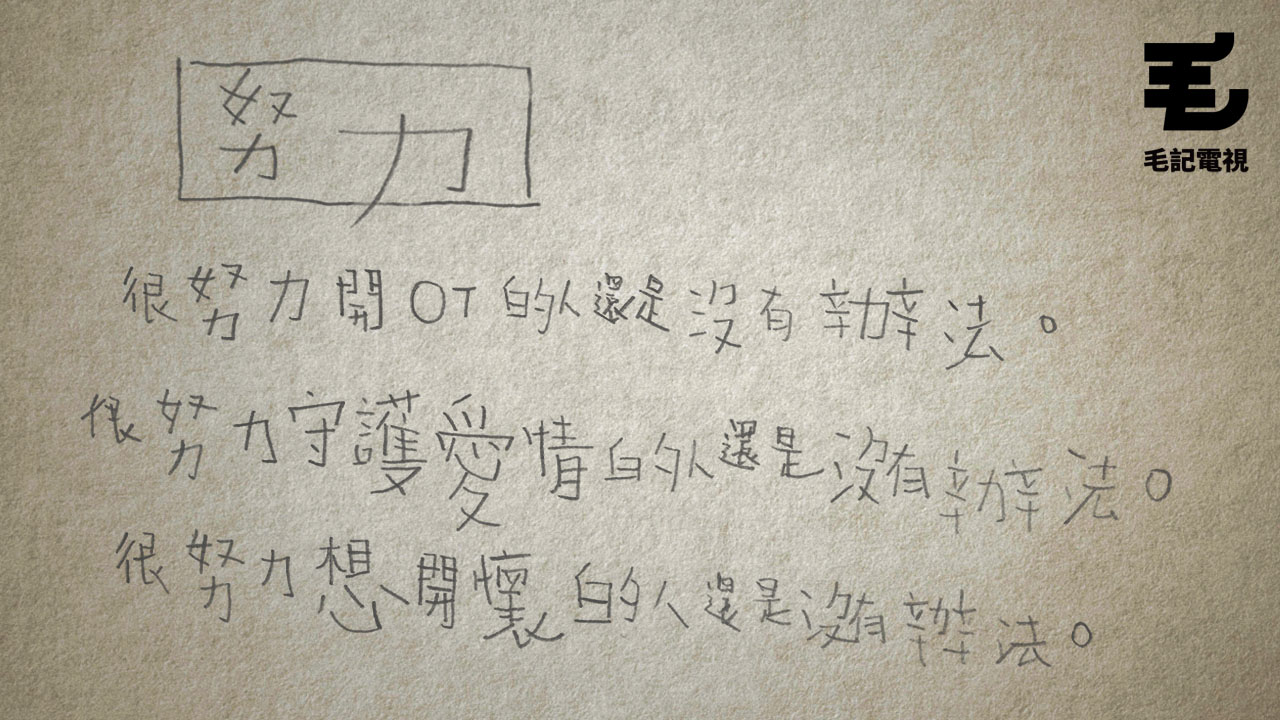 努力
很努力開OT的人還是沒有辦法。
很努力守護愛情的人還是沒有辦法。
很努力想開懷的人還是沒有辦法。
毛
毛記電視